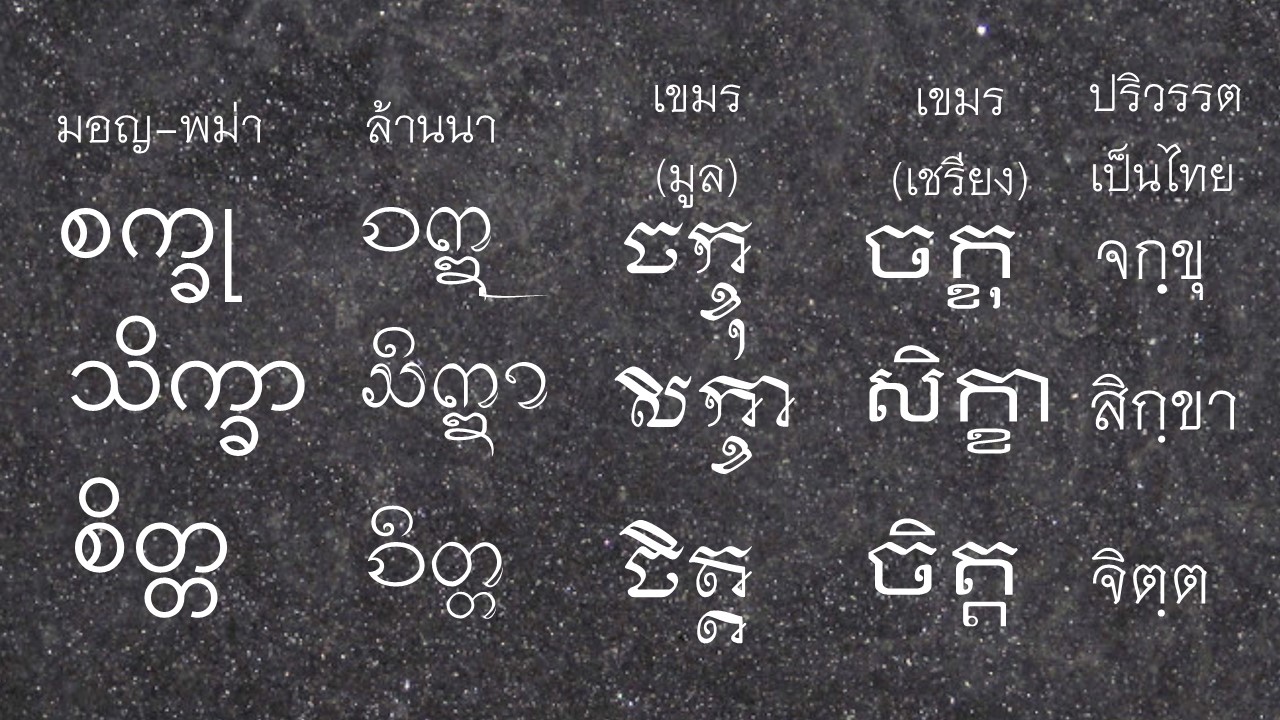 มอญ-พม่า ล้านนา เขมร (มูล) เขมร (เชรียง) ปริวรรต เป็นไทย
စက္ခု ᨧᨠ᩠ᨡᩩ ចក្ខុ ចក្ខុ จกฺขุ
သိက္ခာ ᩈᩥᨠ᩠ᨡᩣ សិក្ខា សិក្ខា สิกฺขา
စိတ္တ ᨧᩥᨲ᩠ᨲ ចិត្ត ចិត្ត จิตฺต